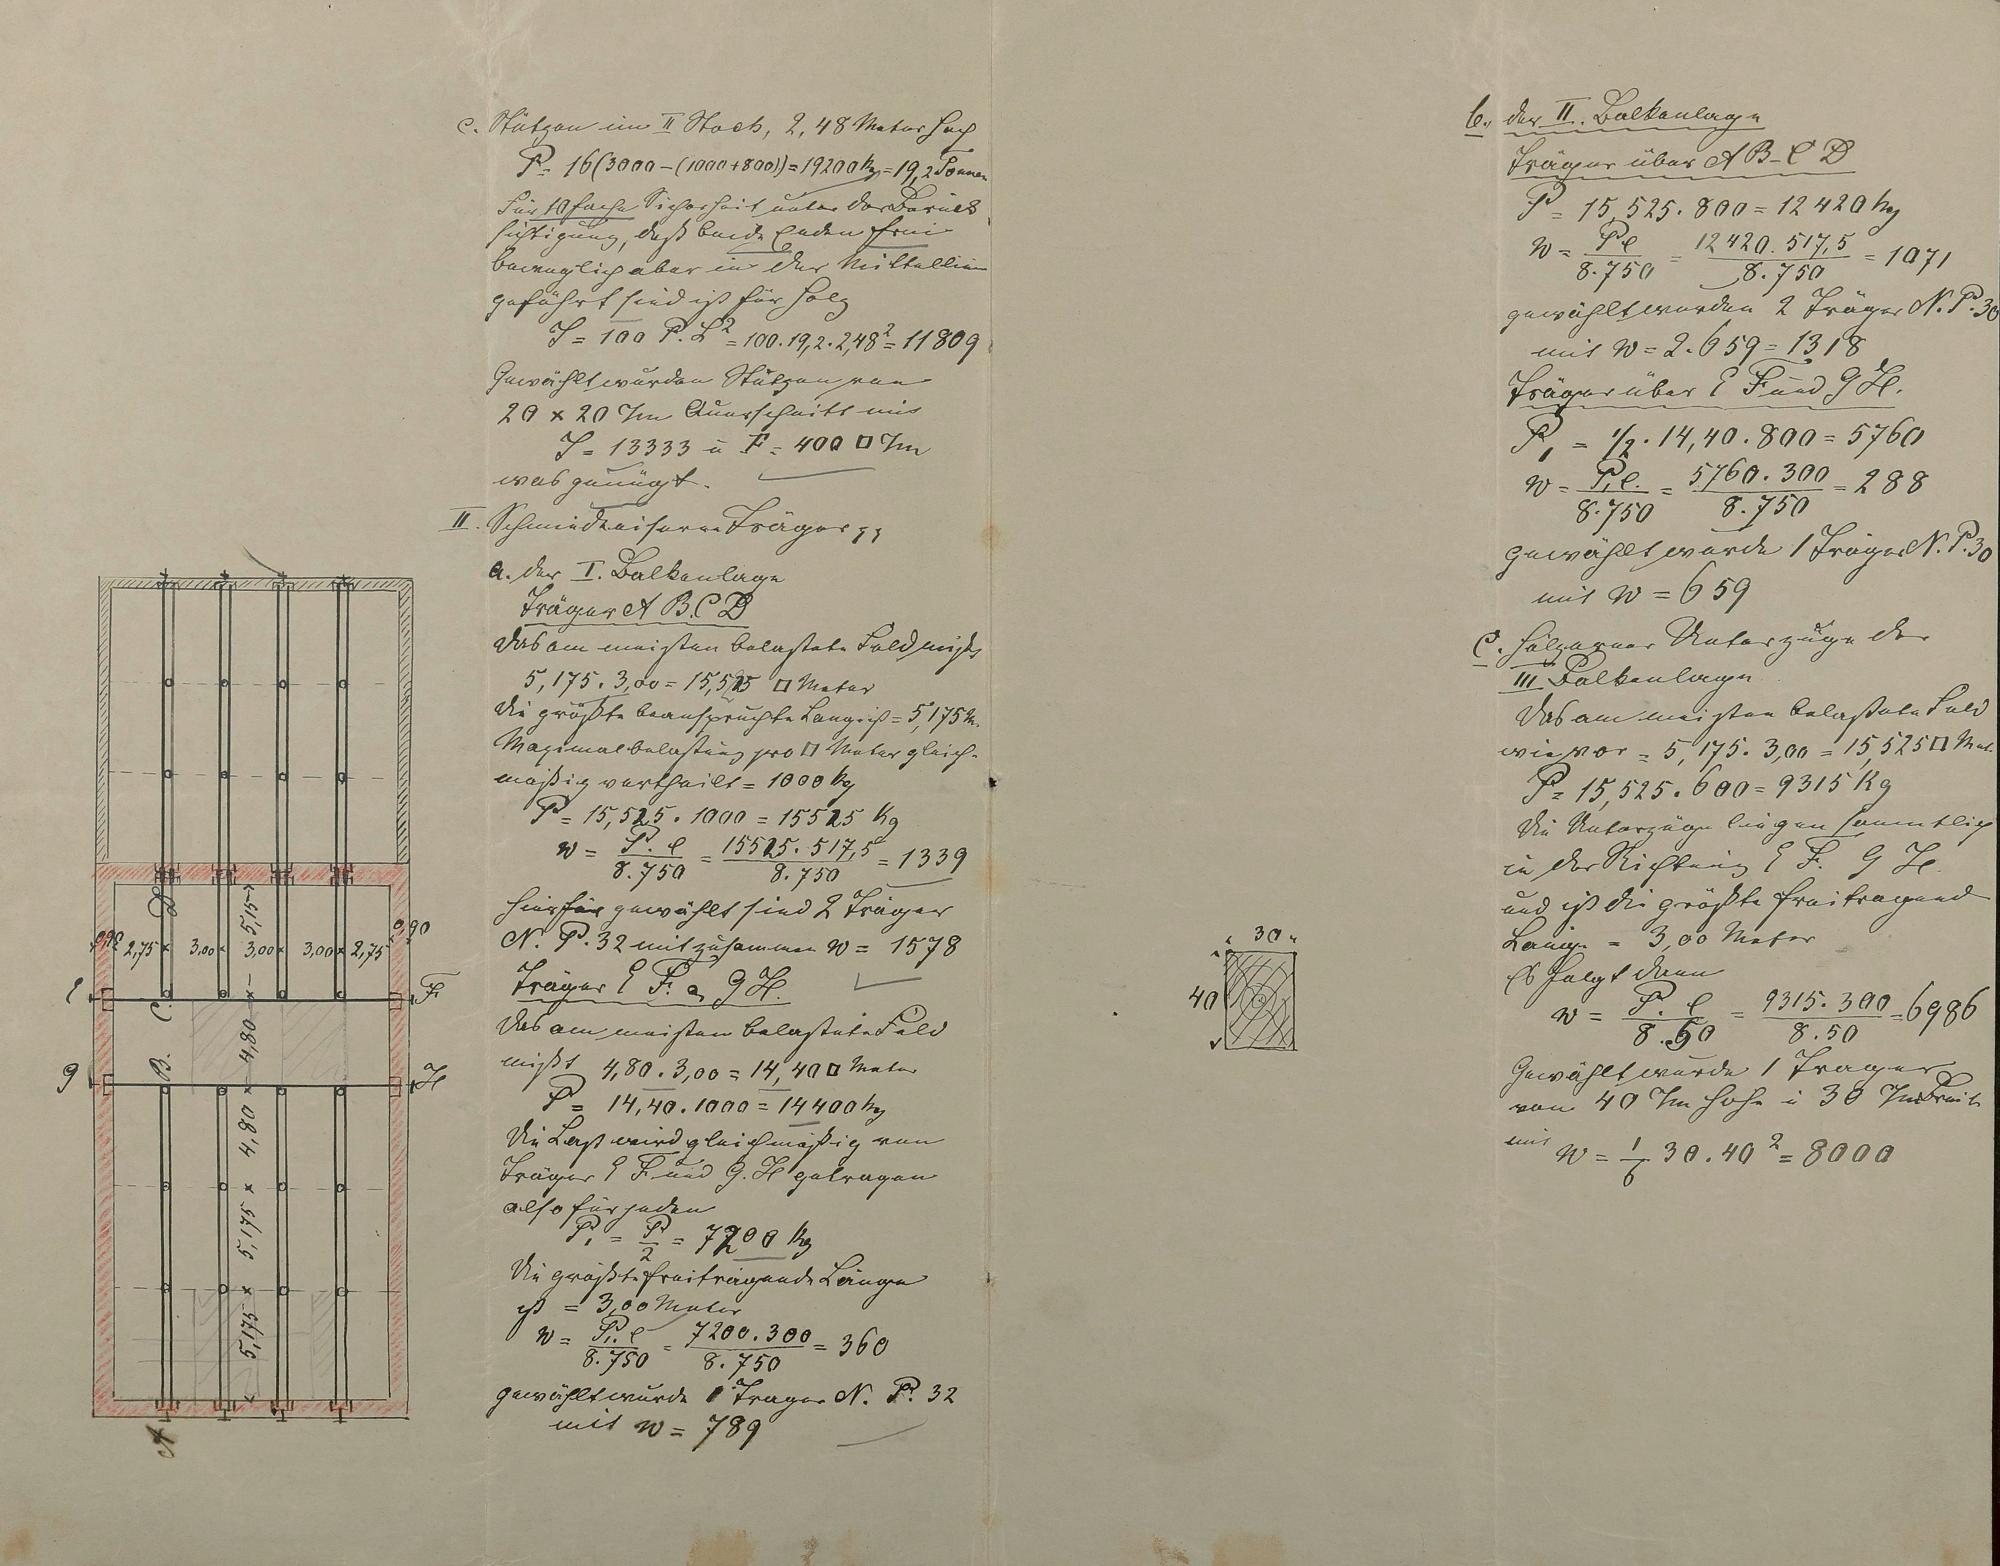 c. Stützen im II Stock, 2,48 Meter hoch
P = 16(3000 – (1000+800)) = 19200 kg = 19,2 Tonnen
Für 10fache Sicherheit unter der Berück
sichtigung, daß beide Enden frei
beweglich aber in der Mittellinie
geführt sind ist für Holz
J = 100 P. L² = 100. 19,2. 2,48² = 11809
Gewählt wurden Stützen von
20 × 20 Zm Querschnitt mit
J = 13333 u F = 400 □ Zm
was genügt.
II. Schmiedeeiserne Träger
a. der I. Balkenlage
Träger A B. C D
Das am meisten belastete Feld mißt
5,175. 3,00 = 15,525 □ Meter
die größte beanspruchte Länge ist = 5,175 M.
Maximalbelastung pro □ Meter gleich-
mäßig vertheilt = 1000 kg
P = 15,525. 1000 = 15525 kg
w = P. l / 8. 750 = 15525. 517,5 / 8. 750 = 1339
hierfür gewählt sind 2 Träger
N. P. 32 mit zusammen w = 1578
Träger E F. u. G H.
Das am meisten belastete Feld
mißt 4,80. 3,00 = 14,40 □ Meter
P = 14,40. 1000 = 14400 kg
Die Last wird gleichmäßig von
Träger E F und G. H getragen
also für jeden
P₁ = P / 2 = 7200 kg
Die größte freitragende Länge
ist = 3,00 Meter
w = P₁. l / 8. 750 = 7200. 300 / 8. 750 = 360
gewählt wurde 1 Träger N. P. 32
mit w = 789
D
5,15
0,90
0,90
2,75 × 3,00 × 3,00 × 3,00 × 2,75
E
F
C
4,80
B.
G
H
5,175 × 5,175 × 4,80 ×
A
30
40
b. der II. Balkenlage
Träger über A B – C D
P = 15,525. 800 = 12420 kg
w = P l / 8. 750 = 12420. 517,5 / 8. 750 = 1071
gewählt wurden 2 Träger N. P. 30
mit w = 2. 659 = 1318
Träger über E F und G H.
P₁ = 1/2. 14,40. 800 = 5760
w = P₁ l. / 8. 750 = 5760. 300 / 8. 750 = 288
gewählt wurde 1 Träger N. P. 30
mit w = 659
c. Hölzerner Unterzüge der
III Balkenlage
Das am meisten belastete Feld
wie vor = 5,175. 3,00 = 15,525 □ Met.
P = 15,525. 600 = 9315 Kg
Die Unterzüge liegen sämmtlich
in der Richtung E F. G H.
und ist die größte freitragend
Länge = 3,00 Meter
Es folgt dann
w = P. l / 8. 50 = 9315. 300 / 8. 50 = 6986
Gewählt wurde 1 Träger
von 40 Zm Höhe u 30 Zm Breite
mit w = 1/6 30. 40² = 8000